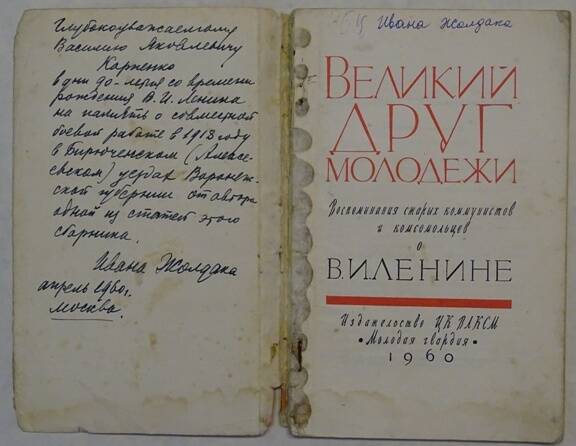 Глубокоуважаемому
Василию Яковлевичу
Карпенко
в дни 90-летия со времени
рождения В. И. Ленина
на память о совместной
боевой работе в 1918 году
в Бирюченском (Алексе-
евском) уездах Воронеж-
ской губернии от автора
одной из статей этого
сборника.
Ивана Жолдака
апрель 1960г.
Москва.
Ивана Жолдака
ВЕЛИКИЙ
ДРУГ
МОЛОДЕЖИ
Воспоминания старых коммунистов
и комсомольцев
о
В.И.ЛЕНИНЕ
Издательство ЦК ВЛКСМ
•Молодая гвардия•
1960